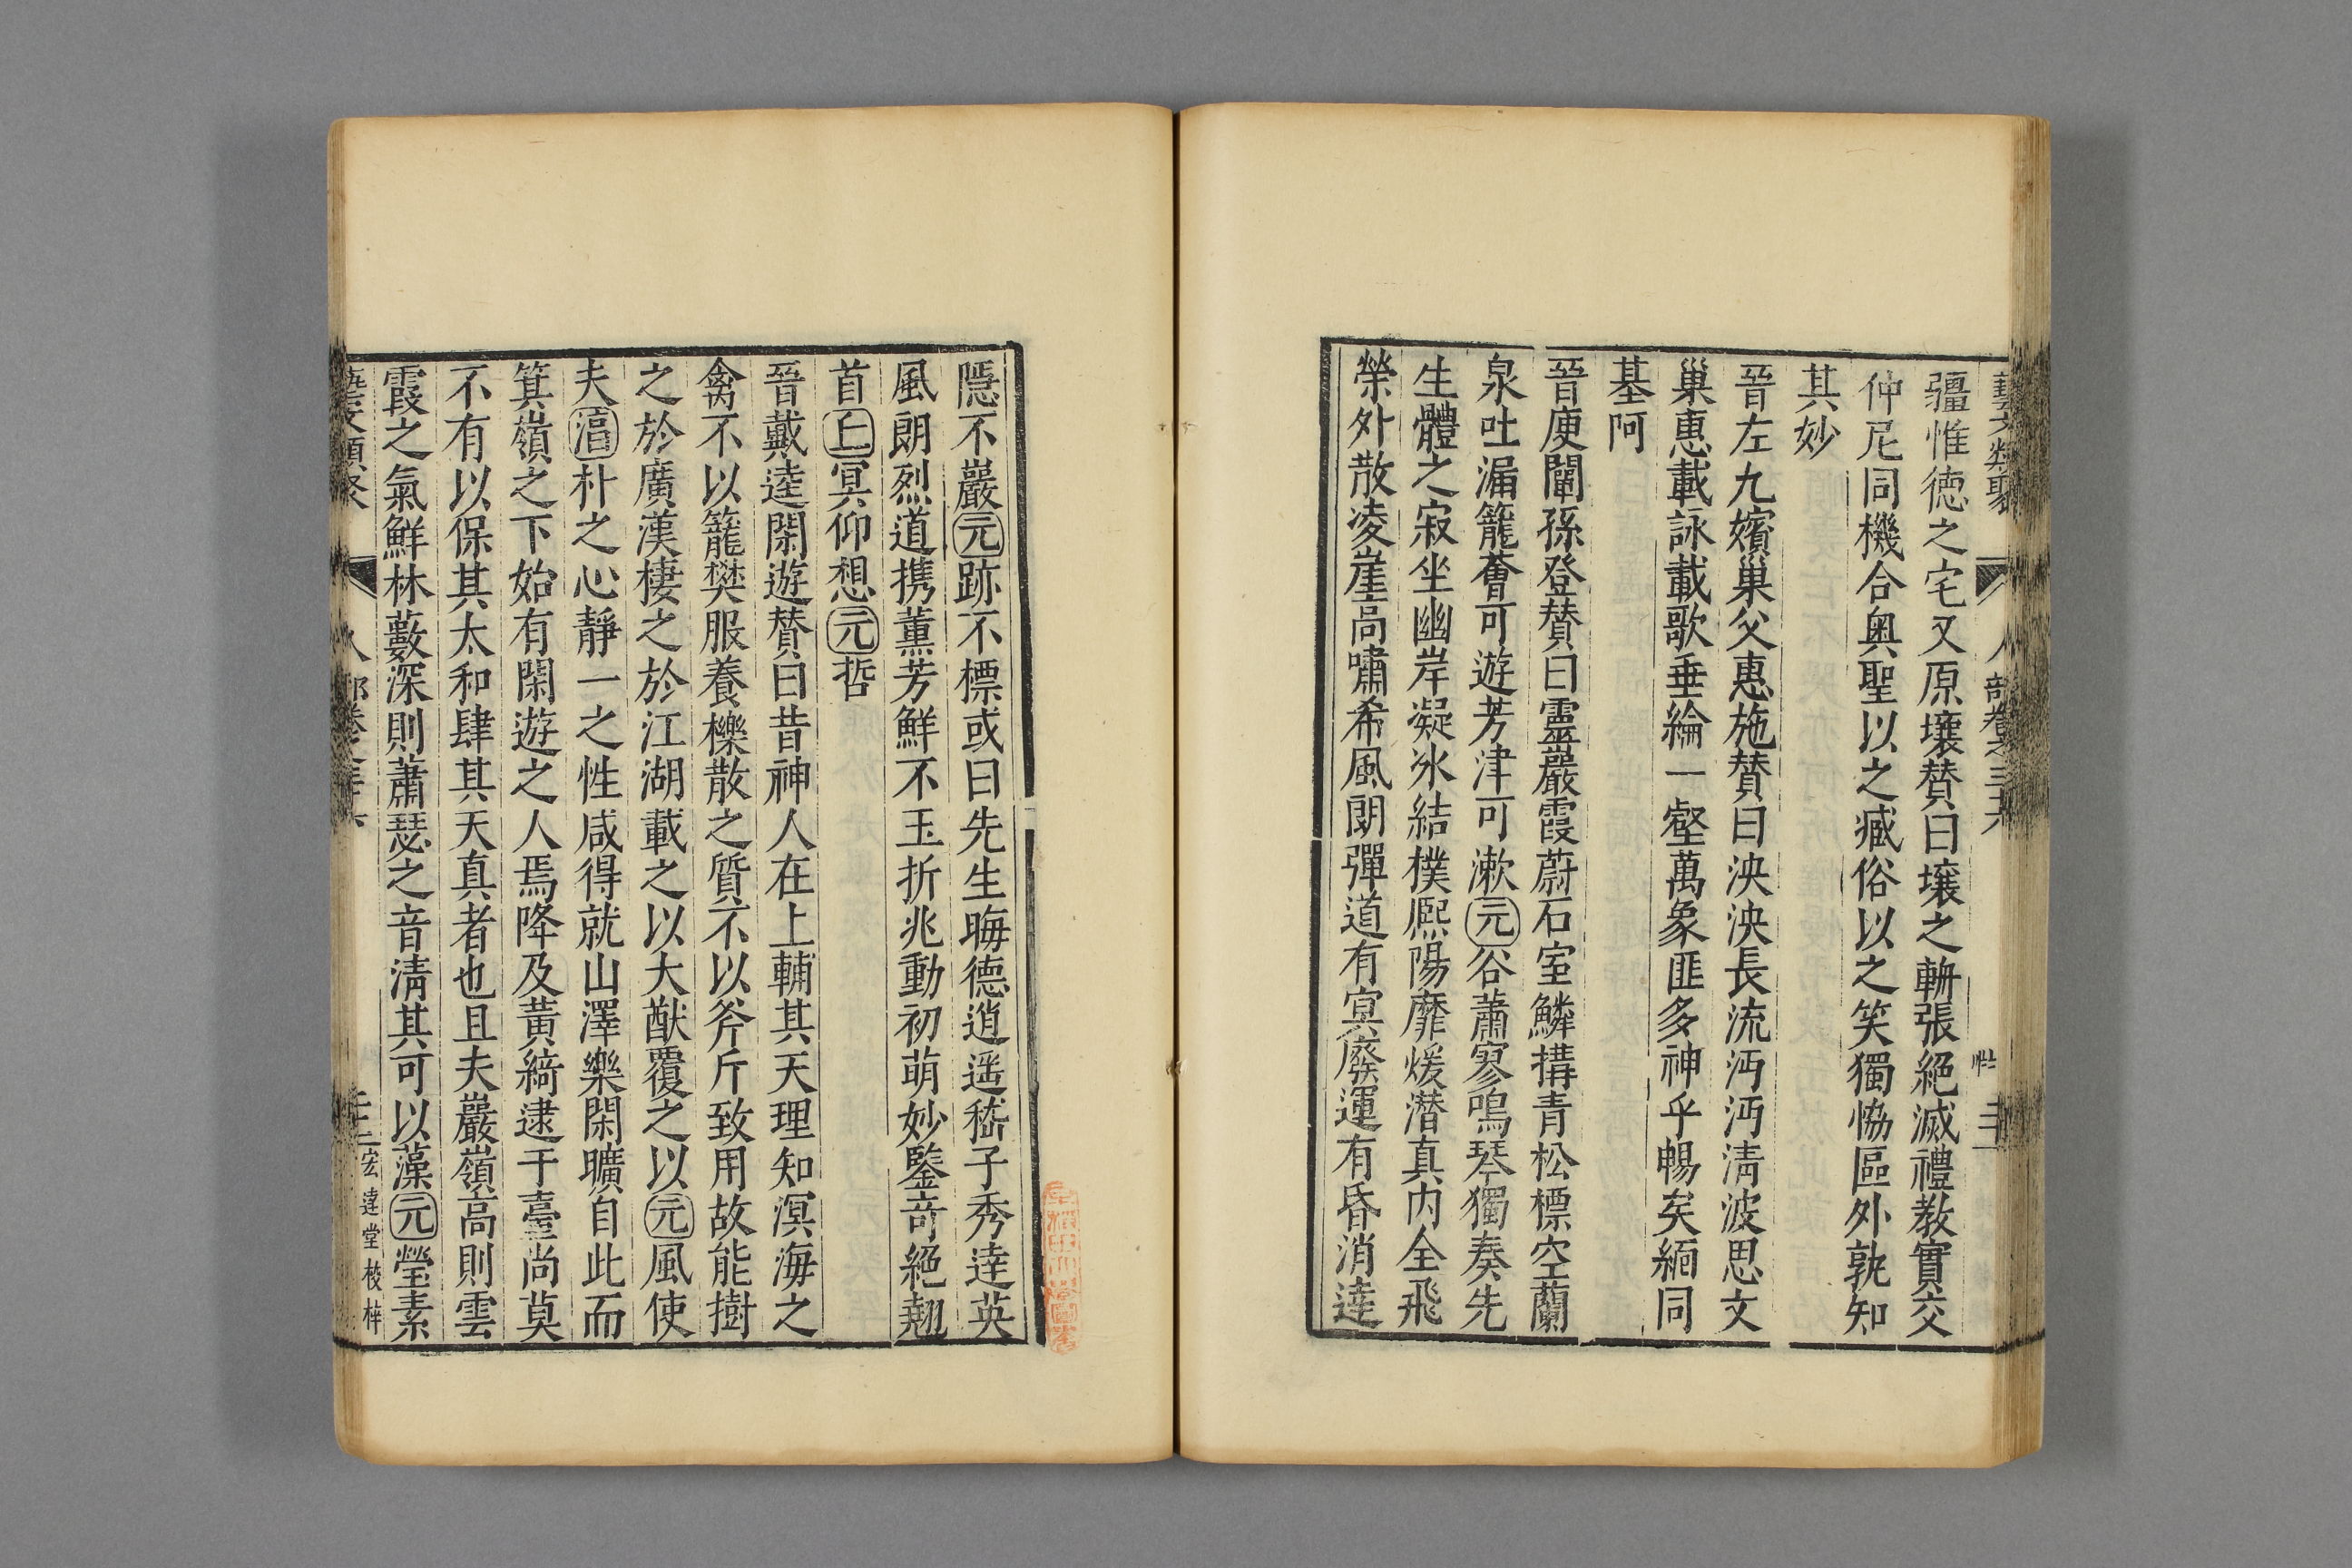 藝文類聚 人部卷之三十六 三十二
疆惟德之宅又原壤賛曰壤之輈張絕滅禮教實交
仲尼同機合奥聖以之臧俗以之笑獨恊區外孰知
其妙
晉左九嬪巢父惠施賛曰泱泱長流沔沔清波思文
巢惠載詠載歌垂綸一壑萬象匪多神乎暢矣緬同
基阿
晉庾闡孫登賛曰靈巖霞蔚石室鱗搆青松標空蘭
泉吐漏籠薈可遊芳津可漱元谷蕭寥鳴琴獨奏先
生體之寂坐幽岸凝冰結樸熙陽靡煖潜真内全飛
榮外散凌崖高嘯希風朗彈道有冥廢運有昏消逹
隱不巖元跡不標或曰先生晦德逍遥嵇子秀逹英
風朗烈道携薰芳鮮不玉折兆動初萌妙鑒竒絕翹
首丘冥仰想元哲
晉戴逵閑遊賛曰昔神人在上輔其天理知溟海之
禽不以籠樊服養櫟散之質不以斧斤致用故能樹
之於廣漢棲之於江湖載之以大猷覆之以元風使
夫淳朴之心靜一之性咸得就山澤樂閑曠自此而
箕嶺之下始有閑遊之人焉降及黃綺逮于臺尚莫
不有以保其太和肆其天真者也且夫巖嶺高則雲
霞之氣鮮林藪深則蕭瑟之音清其可以藻元瑩素
藝文類聚 人部卷之三十六 三十二 宏逹堂校梓